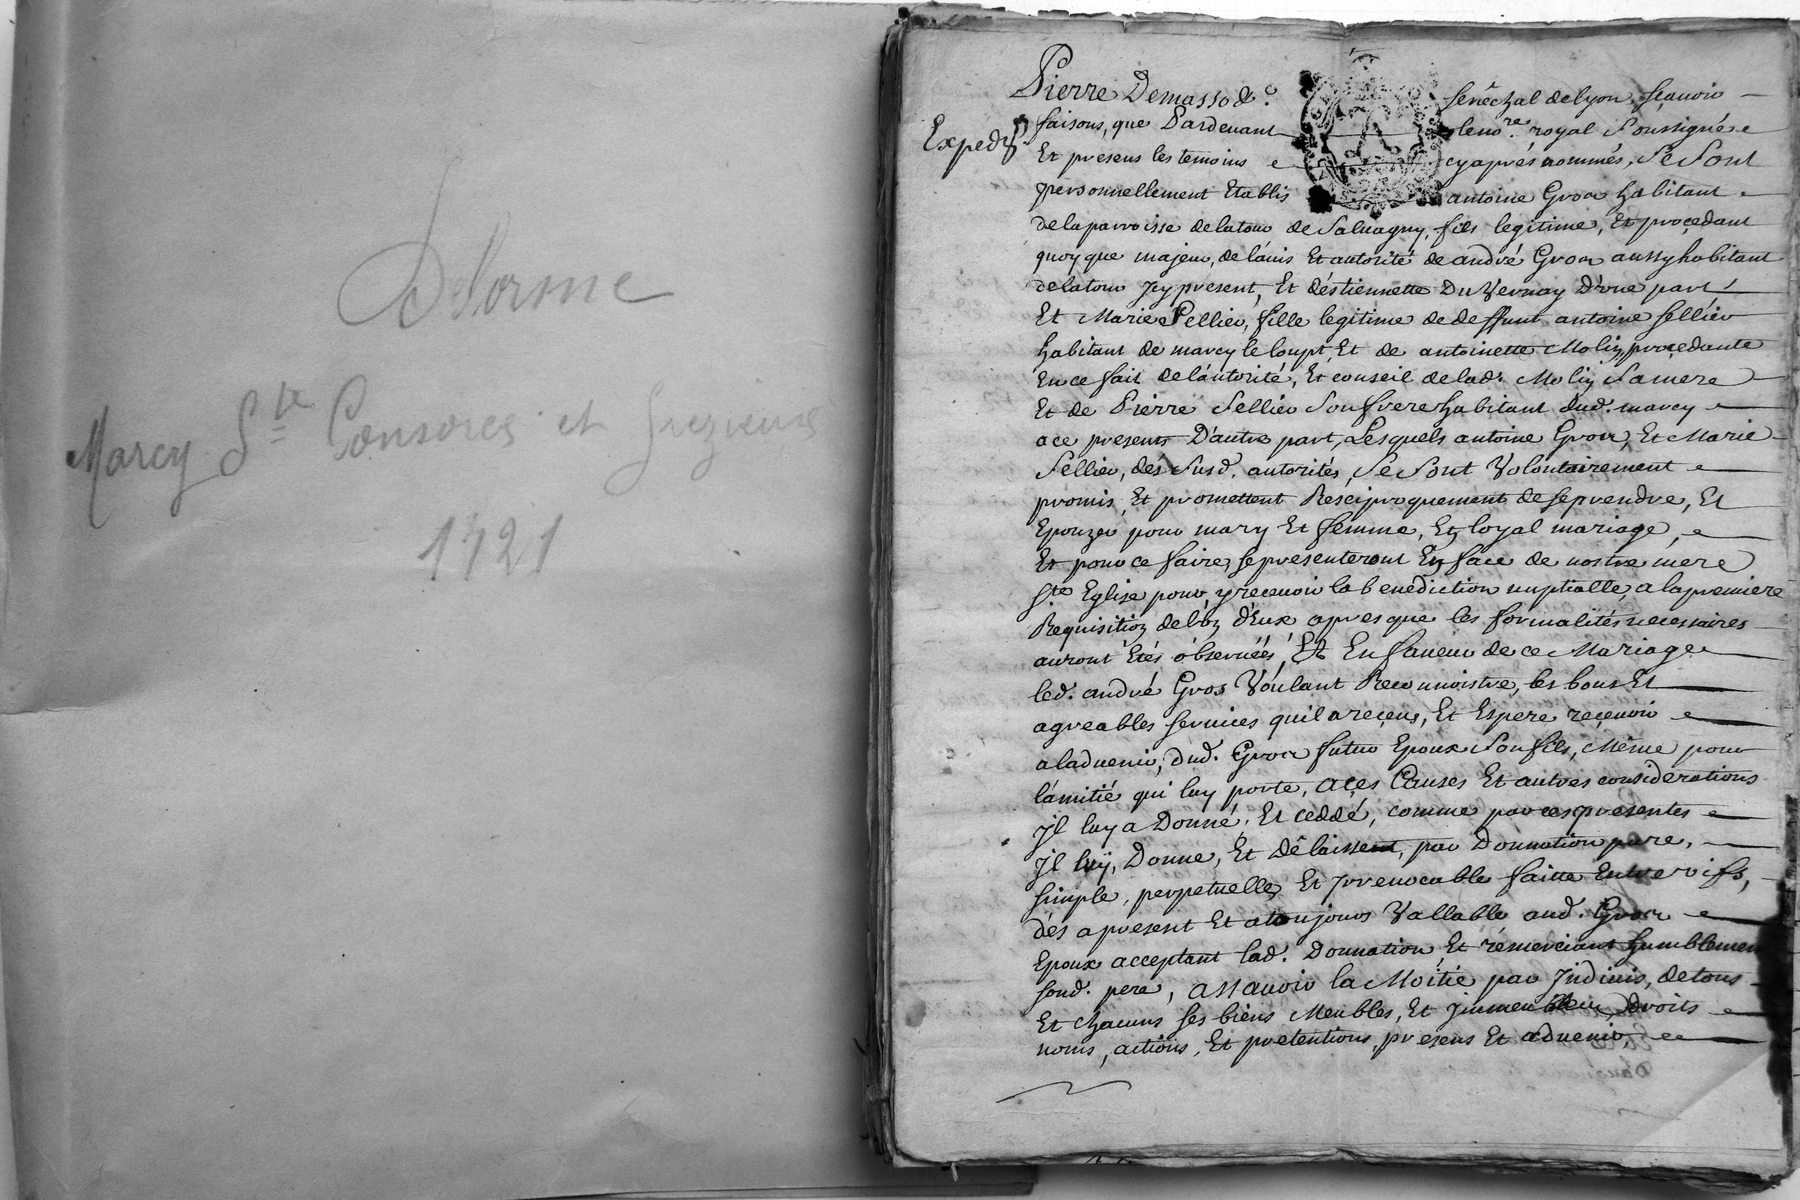 Delorme
Marcy Ste Consorce et Grezieux
1721
Pierre Demasso &c. senéchal de lyon, sçavoir
Expedié
faisons, que Pardevant le nore. royal soussigné
Et presens les temoins cy aprés nommés, se sont
personnellement Etablis antoine Gros habitant
de la parroisse de la tour de Salvagny, fils legitime, Et procedant
quoy que majeur, de l'avis Et autorité de andré Gros aussy habitant
de la tour Jcy present, Et d'éstiennette Du Vernay D'une part
Et Marie Pellier, fille legitime de deffunt antoine sellier
habitant de marcy le loupt, Et de antoinette Molin, procedante
En ce fait de l'autorité, Et conseil de lad. Molin sa mere
Et de Pierre Sellier son frere habitant dud. marcy
a ce presents D'autre part, Lesquels antoine Gros, Et Marie
Sellier, dés susd. autorités, se sont Volontairement
promis, Et promettent Resciproquement de se prendre, Et
Epouzer pour mary Et femme, En loyal mariage,
Et pour ce faire, se presenteront En face de nostre mere
Ste Eglise pour, y recevoir la benediction nuptialle, a la premiere
Requisition de l'un d'Eux apres que les formalités necessaires
auront Etés observéés, Et En faveur de ce Mariage
led. andré Gros Voulant Reconnoistre, les bons Et
agreables services qu'il a reçeus, Et Espere reçevoir
a l'advenir, dud. Gros futur Epoux son fils, Même pour
l'amitié qui luy porte, a çes Causes Et autres considerations
Jl luy a Donné, Et ceddé, comme par ces presentes
Jl luy, Donne, Et Délaissent, par Donnation pure,
simple, perpetuelle, Et Jrrevocable faitte Entre vifs,
dés a present Et a toujours Vallable aud. Gros
Epoux acceptant lad. Donnation, Et rémerciant humblement
sond. pere, assavoir la Moitié par Jndivis, de tous
Et chacuns ses biens Meubles, Et Jmmeubles, droits
noms, actions, Et pretentions, presens Et advenir,